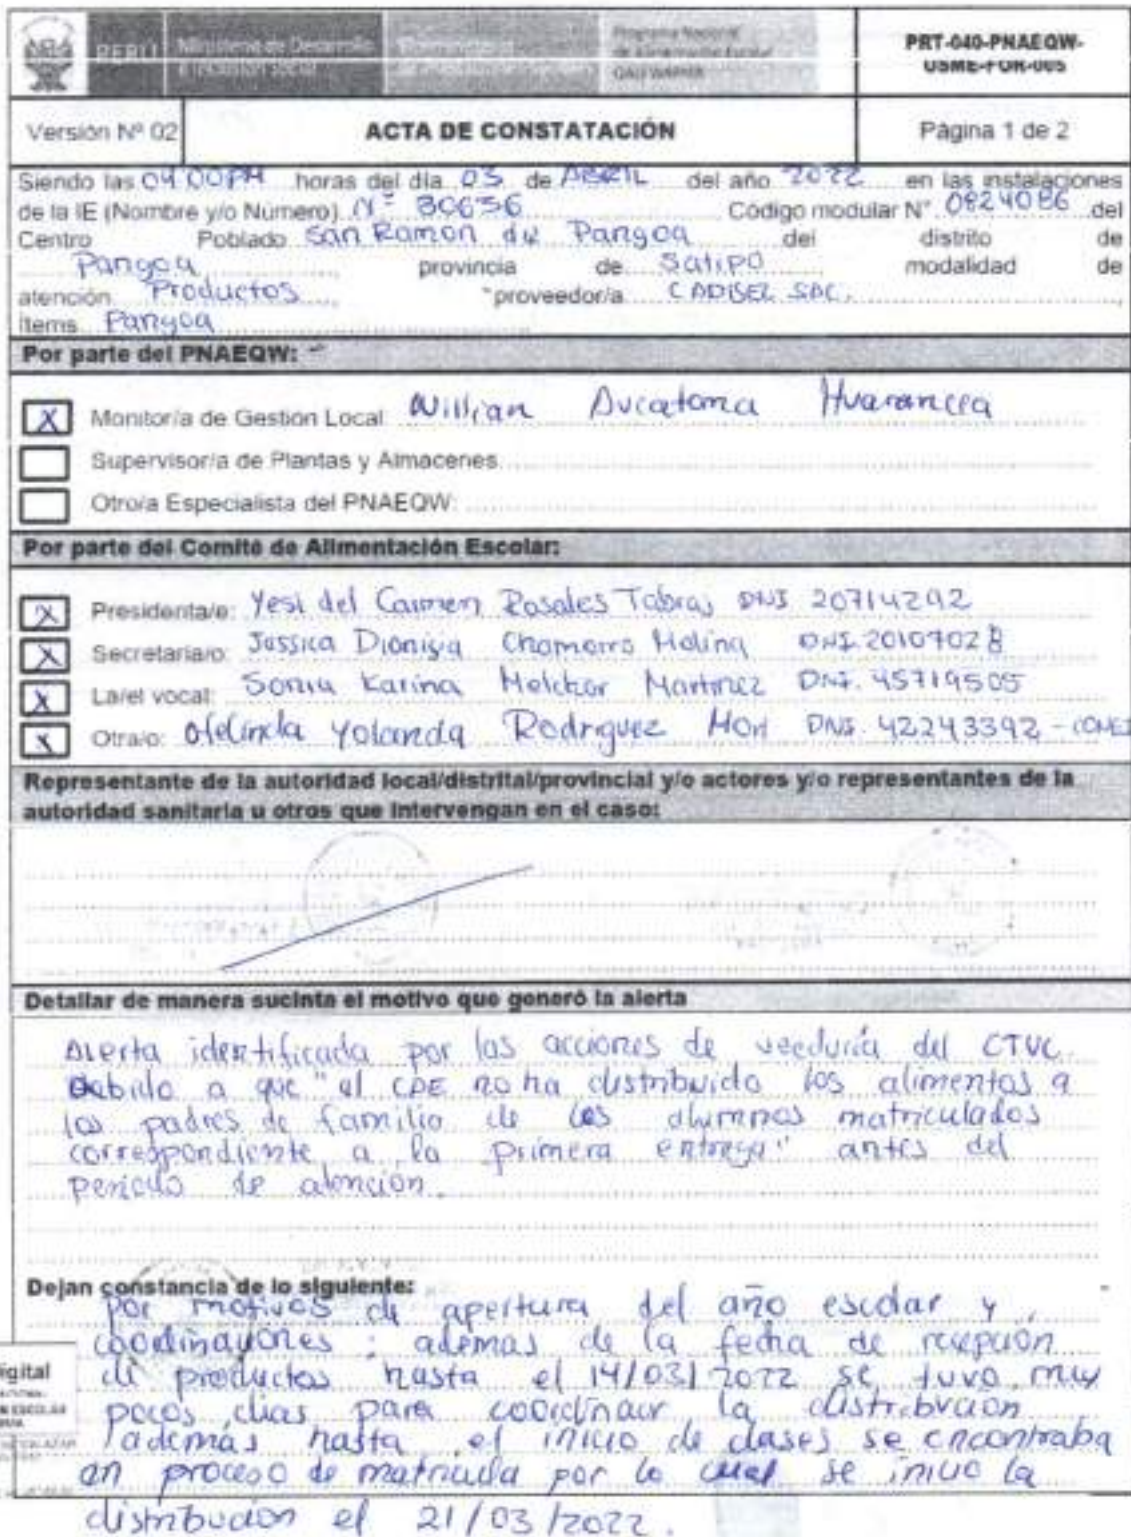 PERÚ Ministerio de Desarrollo e Inclusión Social Programa Nacional de Alimentación Escolar QALI WARMA
PRT-040-PNAEQW-USME-FOR-005
Versión Nº 02 ACTA DE CONSTATACIÓN Página 1 de 2
Siendo las 04:00PM horas del día 05 de ABRIL del año 2022 en las instalaciones
de la IE (Nombre y/o Número) Nº 30636 Código modular N° 0824086 del
Centro Poblado San Ramon de Pangoa del distrito de
Pangoa provincia de Satipo modalidad de
atención Productos, proveedor/a CADISEL SAC.,
Items Pangoa
Por parte del PNAEQW:
X Monitor/a de Gestión Local: Willian Aucatoma
Supervisor/a de Plantas y Almacenes:
Otro/a Especialista del PNAEQW:
Por parte del Comité de Alimentación Escolar:
X Presidenta/e: Yesi del Carmen Rosales DNI 20714292
X Secretaria/o: Jessica Dionisia Chamorro Molina DNI. 20107028
X La/el vocal: Sonia Karina Melchor Martinez DNI. 45719505
X Otra/o: Yolanda Rodriguez DNI. 42243392 -
Representante de la autoridad local/distrital/provincial y/o actores y/o representantes de la
autoridad sanitaria u otros que intervengan en el caso:
Detallar de manera sucinta el motivo que generó la alerta
Alerta identificada por las acciones de veeduría del CTVC
debido a que "el CAE no ha distribuido los alimentos a
los padres de familia de los alumnos matriculados
correspondiente a la primera entrega" antes del
periodo de atención.
Dejan constancia de lo siguiente:
Por motivos de apertura del año escolar y
coordinaciones ; ademas de la fecha de recepción
de productos hasta el 14/03/2022 se tuvo muy
pocos dias para coordinar la distribución
además hasta el inicio de clases se encontraba
en proceso de matricula por lo cual se inicio la
distribución el 21/03/2022.
igital